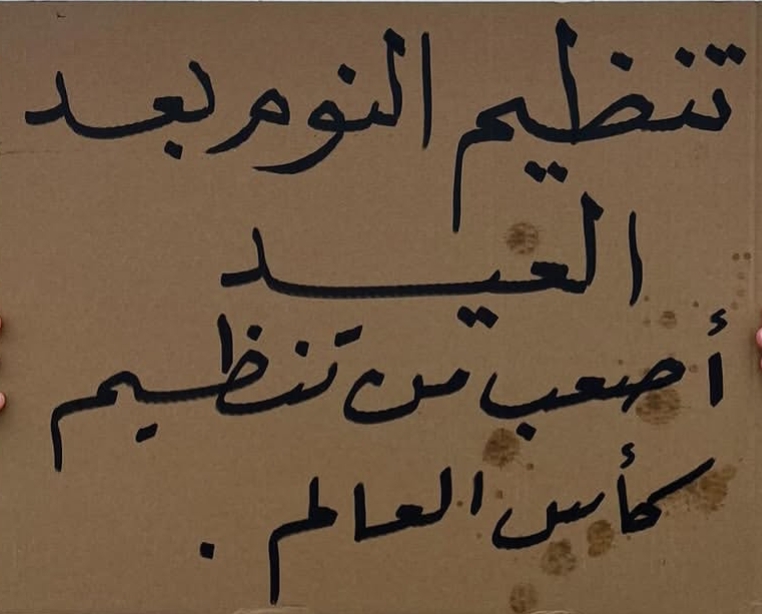 تنظيم النوم بعد
العيد
أصعب من تنظيم
كأس العالم .